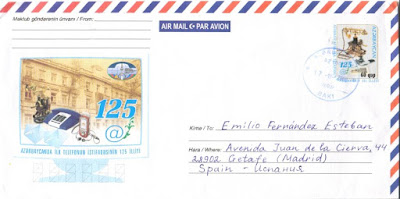 Məktub göndərənin ünvanı / From:
AIR MAIL ✈ PAR AVION
AZƏRBAYCAN
125
60 qəp
BAKI
125
@
AZƏRBAYCANDA İLK TELEFONUN İSTİFADƏSİNİN 125 İLLİYİ
Kimə / To: Emilio Fernández Esteban
Hara / Where: Avenida Juan de la Cierva, 44
28902 Getafe (Madrid)
Spain - Испания